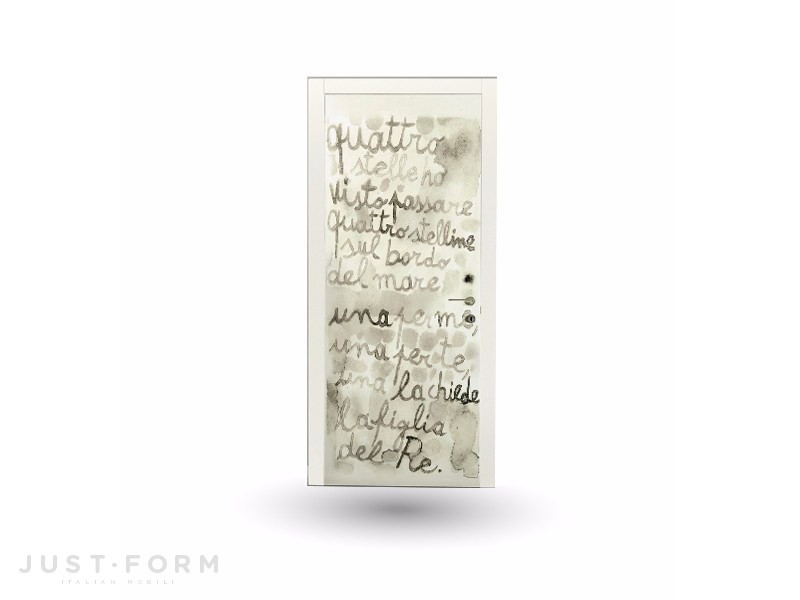 quattro
stelle ho
visto passare
quattro stelline
sul bordo
del mare,
una per me,
una per te,
una la chiede
la figlia
del Re.
JUST·FORM
ITALIAN MOBILI